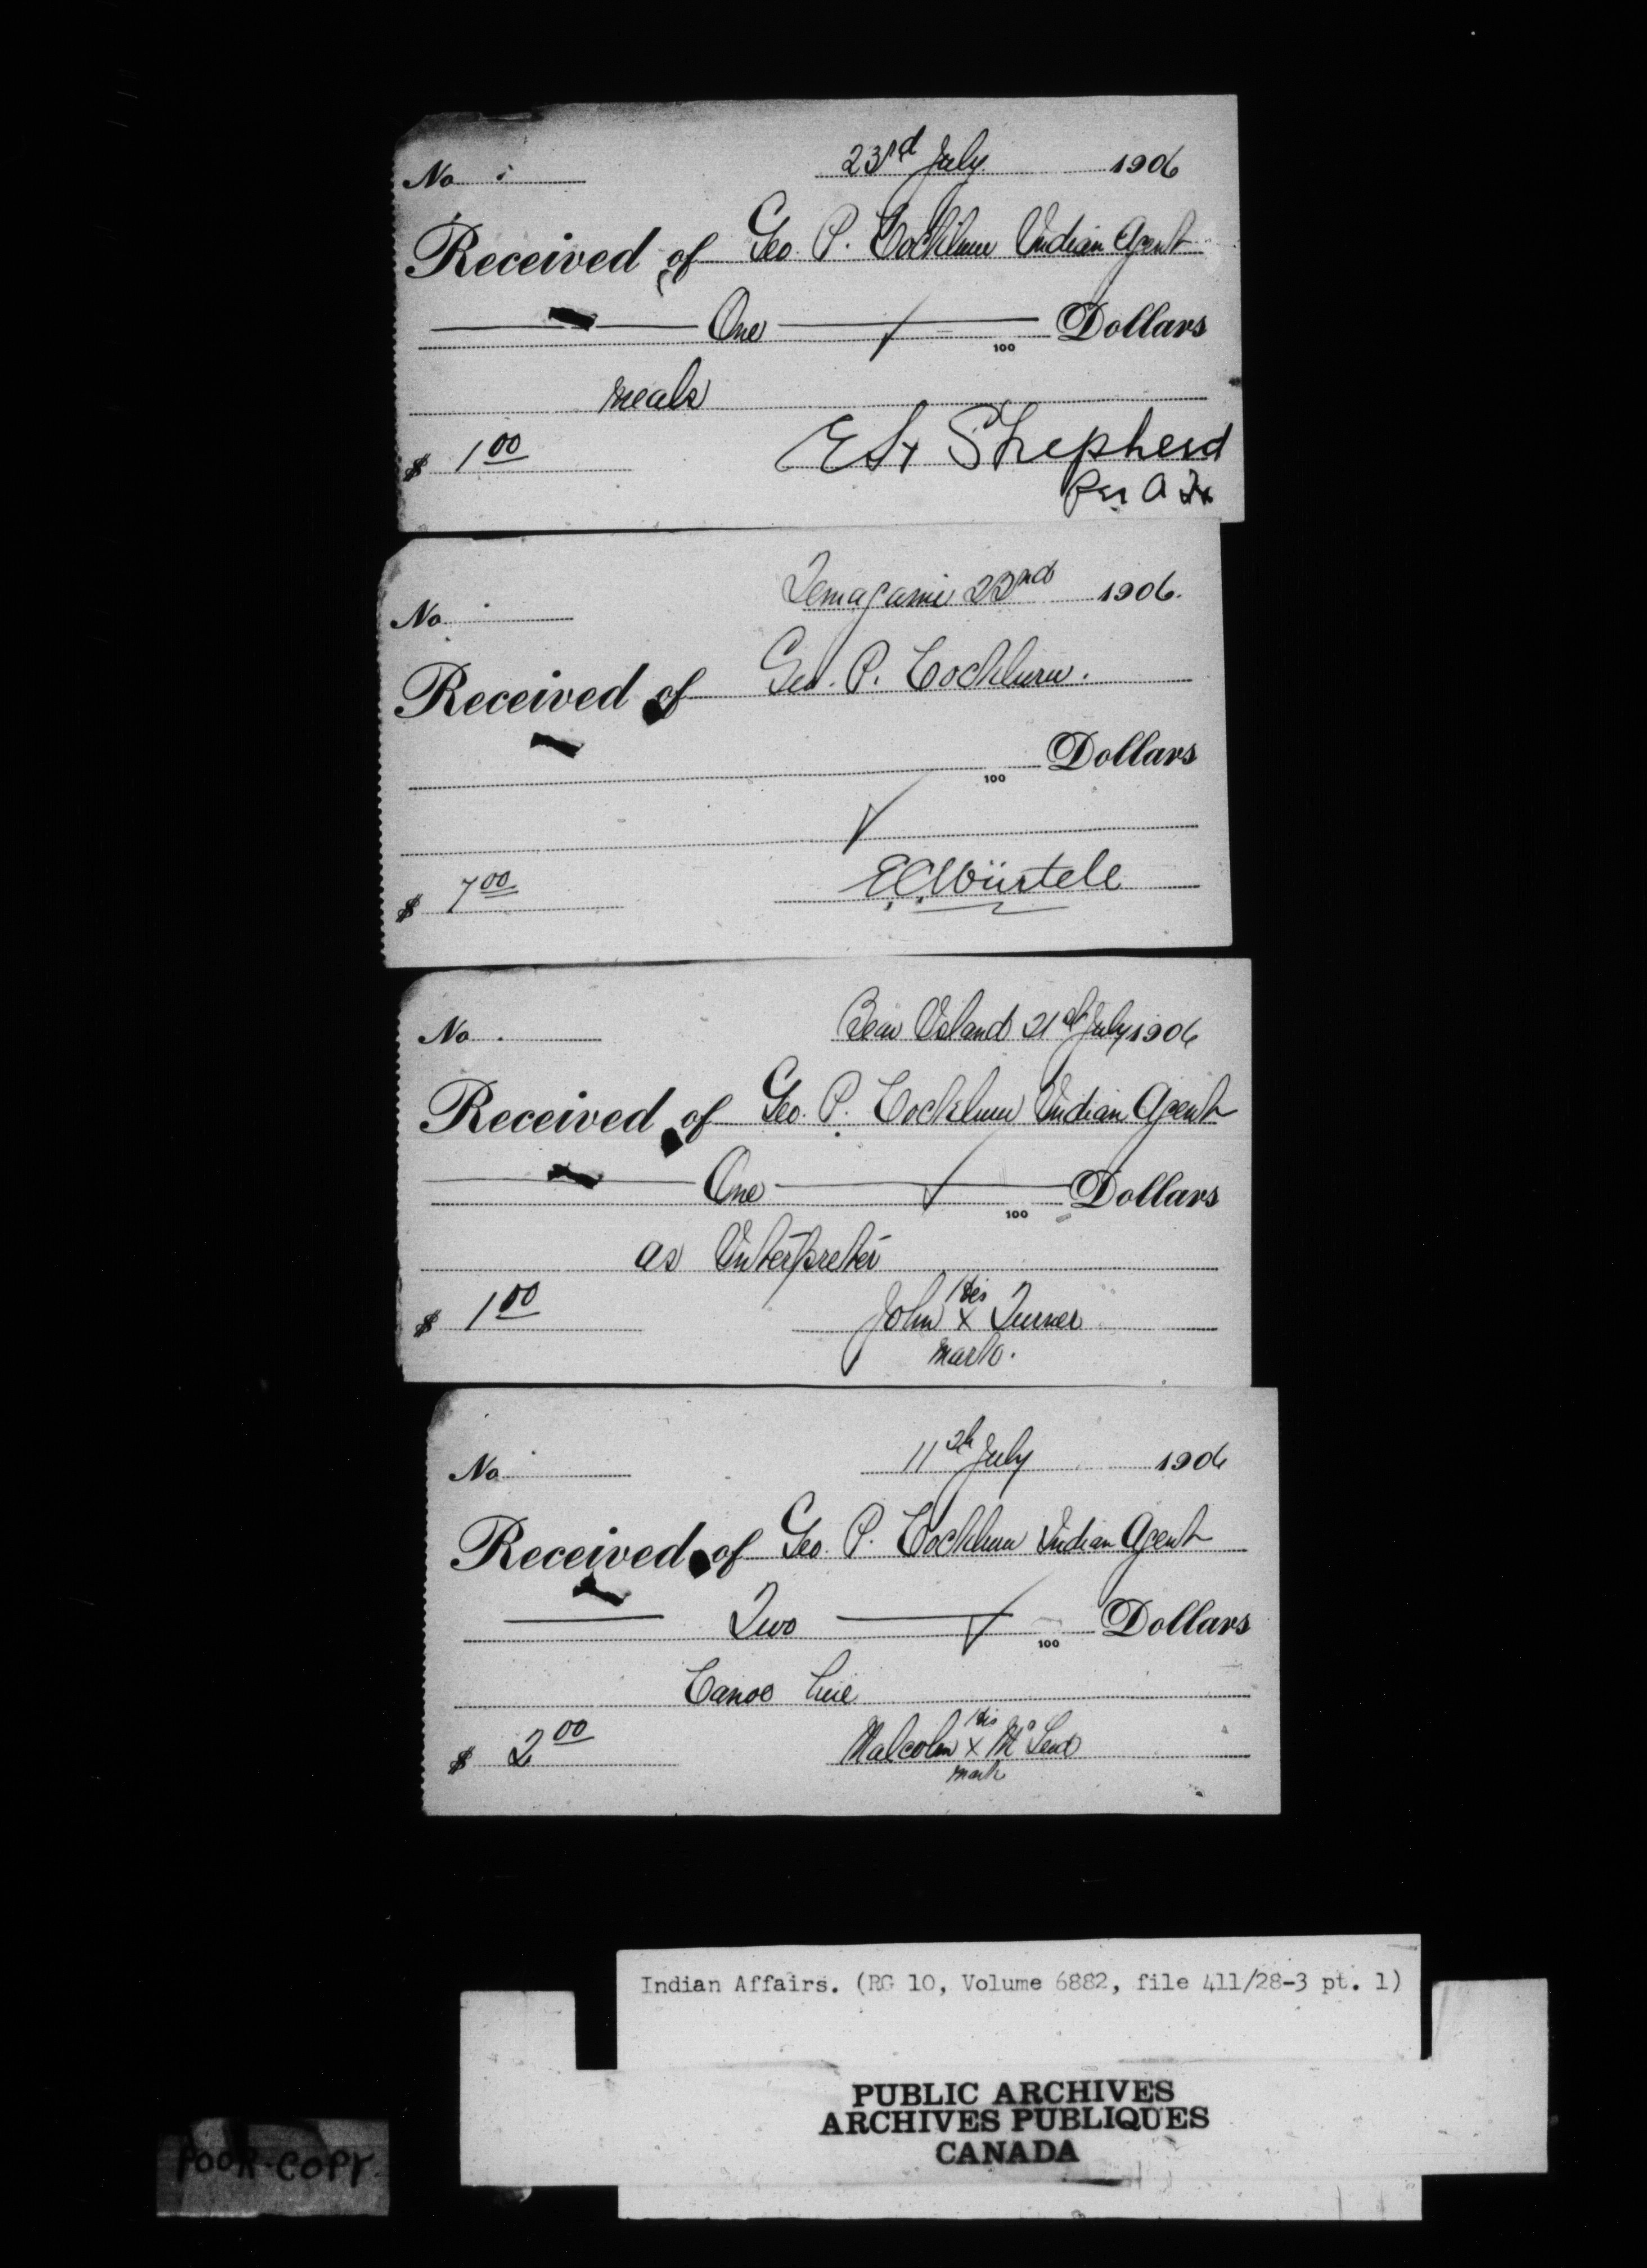 No 23rd July 1906
Received of Geo. P. Cockburn Indian Agent
One 100 Dollars
meals
$ 1 00 Shepherd
Per A
No Temagami 22nd 1906.
Received of Geo. P. Cockburn.
100 Dollars
$ 7 00 E.C. Würtele
No Bear Island 21st July 1906
Received of Geo. P. Cockburn Indian Agent
One 100 Dollars
as Interpreter
his
$ 1 00 John x Turner
mark.
No 11th July 1906
Received of Geo. P. Cockburn Indian Agent
Two 100 Dollars
Canoe hire
his
$ 2 00 Malcolm x McLeod
mark
Indian Affairs. (RG 10, Volume 6882, file 411/28-3 pt. 1)
PUBLIC ARCHIVES
ARCHIVES PUBLIQUES
CANADA
POOR COPY.